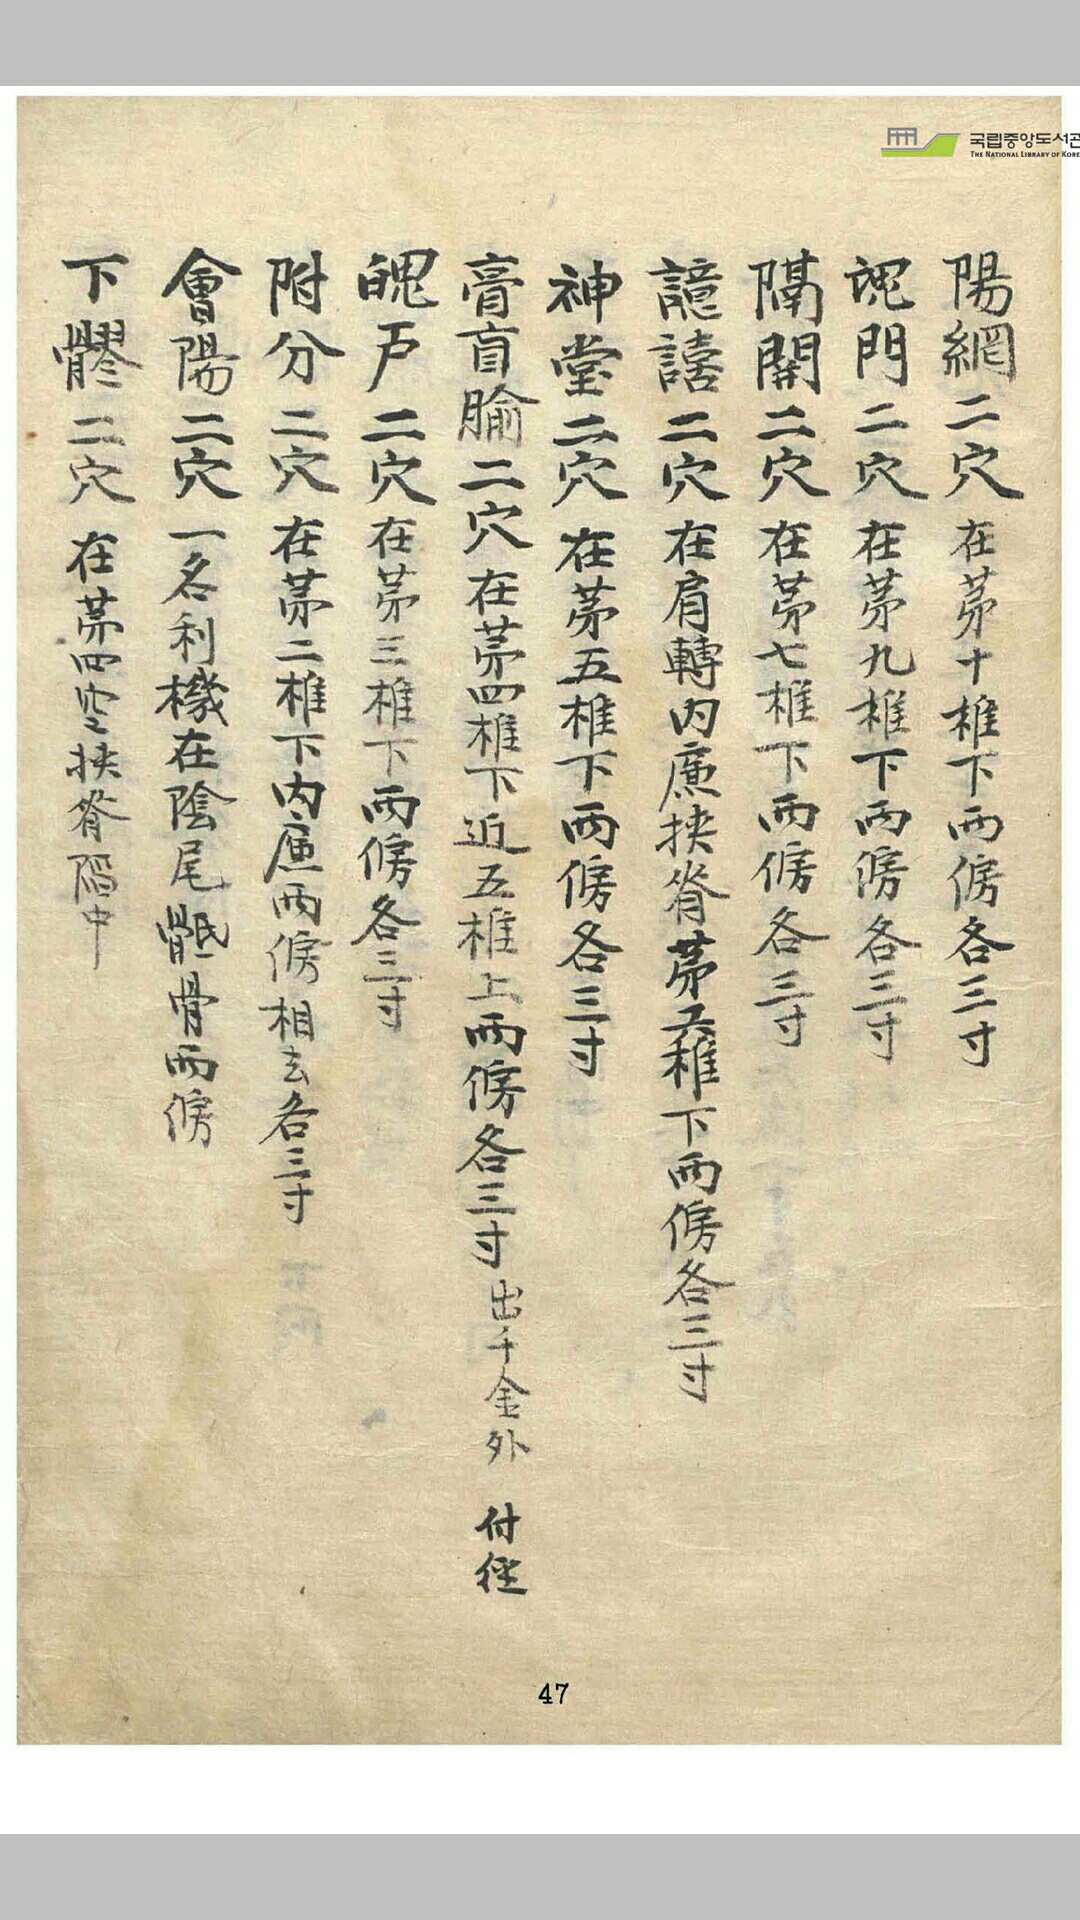 국립중앙도서관
THE NATIONAL LIBRARY OF KORE
陽網二穴在苐十椎下兩傍各三寸
魂門二穴在苐九椎下兩傍各三寸
隔關二穴在苐七椎下兩傍各三寸
譩譆二穴在肩轉內廉挾脊苐六椎下兩傍各三寸
神堂二穴在苐五椎下兩傍各三寸
膏盲腧二穴在苐四椎下近五椎上兩傍各三寸出千金外 付徑
魄戸二穴在苐三椎下兩傍各三寸
附分二穴在苐二椎下內廉兩傍相去各三寸
會陽二穴一名利機在陰尾骶骨兩傍
下髎二穴在苐四空挾脊陷中
47